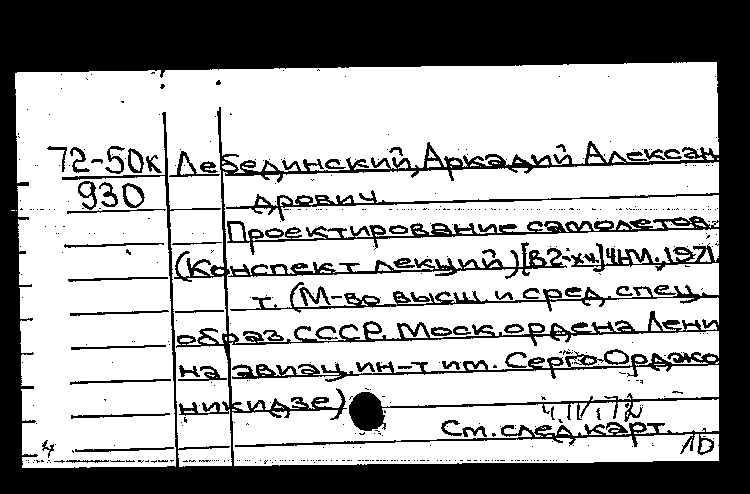 72-50к Лебединский, Аркадий Алексан
930
дрович.
Проектирование самолетов.
(Конспект лекций) [В 2-х ч.] Ч.1-   , 1971.
т. (М-во высш. и сред. спец.
образ. СССР. Моск. ордена Лени
на авиац. ин-т им. Серго Орджо
никидзе)
4.IV.72
См. след. карт.
4
10